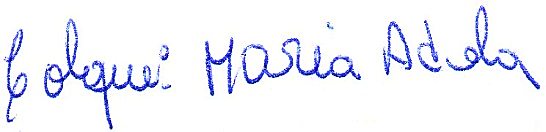 Colqui Maria Adela